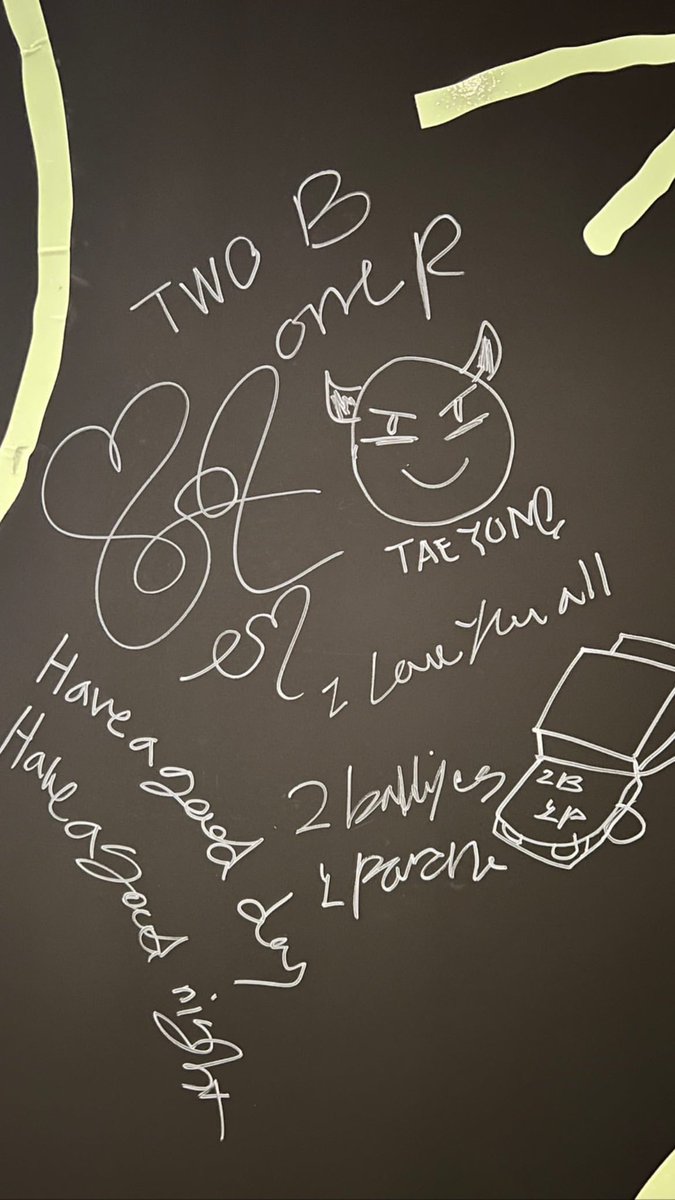 TWO B
one R
TAEYONG
I Love You all
Have a good day
Have a good night
2 
1 
2B